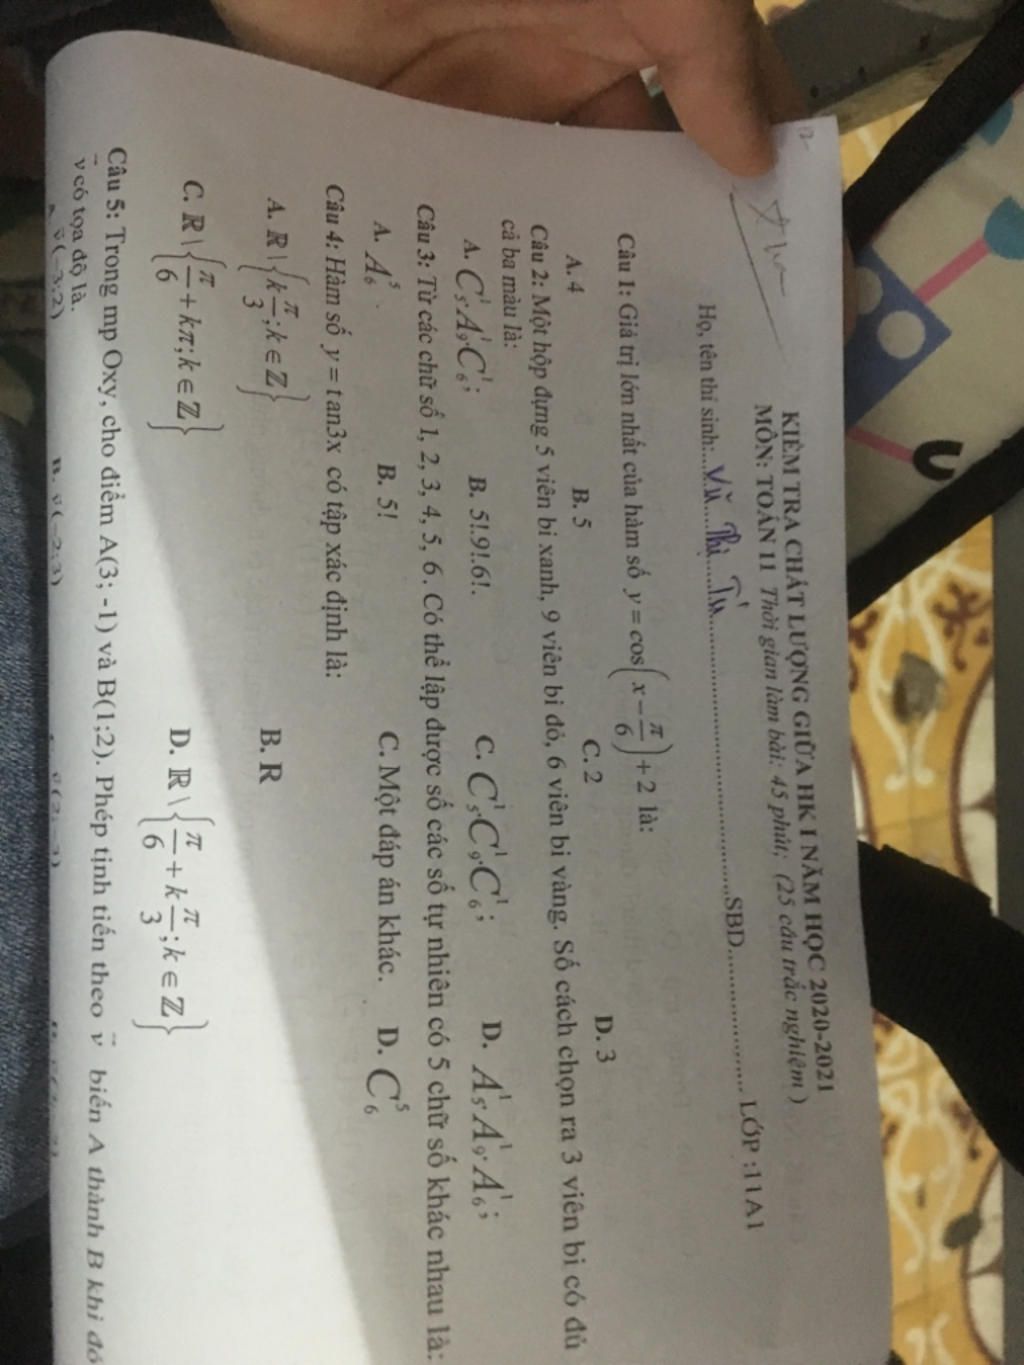 KIỂM TRA CHẤT LƯỢNG GIỮA HK I NĂM HỌC 2020-2021
MÔN: TOÁN 11 Thời gian làm bài: 45 phút; (25 câu trắc nghiệm )
Họ, tên thí sinh:...Vũ...Thị...Tú...SBD................ LỚP :11A1
Câu 1: Giá trị lớn nhất của hàm số y = cos(x − π/6) + 2 là:
A. 4 B. 5 C. 2 D. 3
Câu 2: Một hộp đựng 5 viên bi xanh, 9 viên bi đỏ, 6 viên bi vàng. Số cách chọn ra 3 viên bi có đủ
cả ba màu là:
A. C¹₅.A¹₉.C¹₆; B. 5!.9!.6!. C. C¹₅.C¹₉.C¹₆; D. A¹₅.A¹₉.A¹₆;
Câu 3: Từ các chữ số 1, 2, 3, 4, 5, 6. Có thể lập được số các số tự nhiên có 5 chữ số khác nhau là:
A. A⁵₆. B. 5! C. Một đáp án khác. D. C⁵₆
Câu 4: Hàm số y = tan3x có tập xác định là:
A. ℝ \ {k π/3; k ∈ ℤ} B. R
C. ℝ \ {π/6 + kπ; k ∈ ℤ} D. ℝ \ {π/6 + k π/3; k ∈ ℤ}
Câu 5: Trong mp Oxy, cho điểm A(3; -1) và B(1;2). Phép tịnh tiến theo v⃗ biến A thành B khi đó
v⃗ có tọa độ là.
A. v⃗(−3;2) B. v⃗(−2;3)